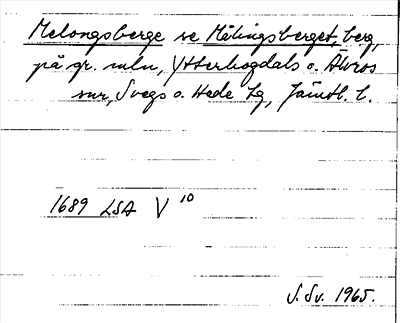 Melongsberge se Mälingsberget, berg,
på gr. mln, Ytterhogdals o. Älvros
snr, Svegs o. Hede tg, Jämtl. l.
1689 LSA V 10
S. Sv. 1965.